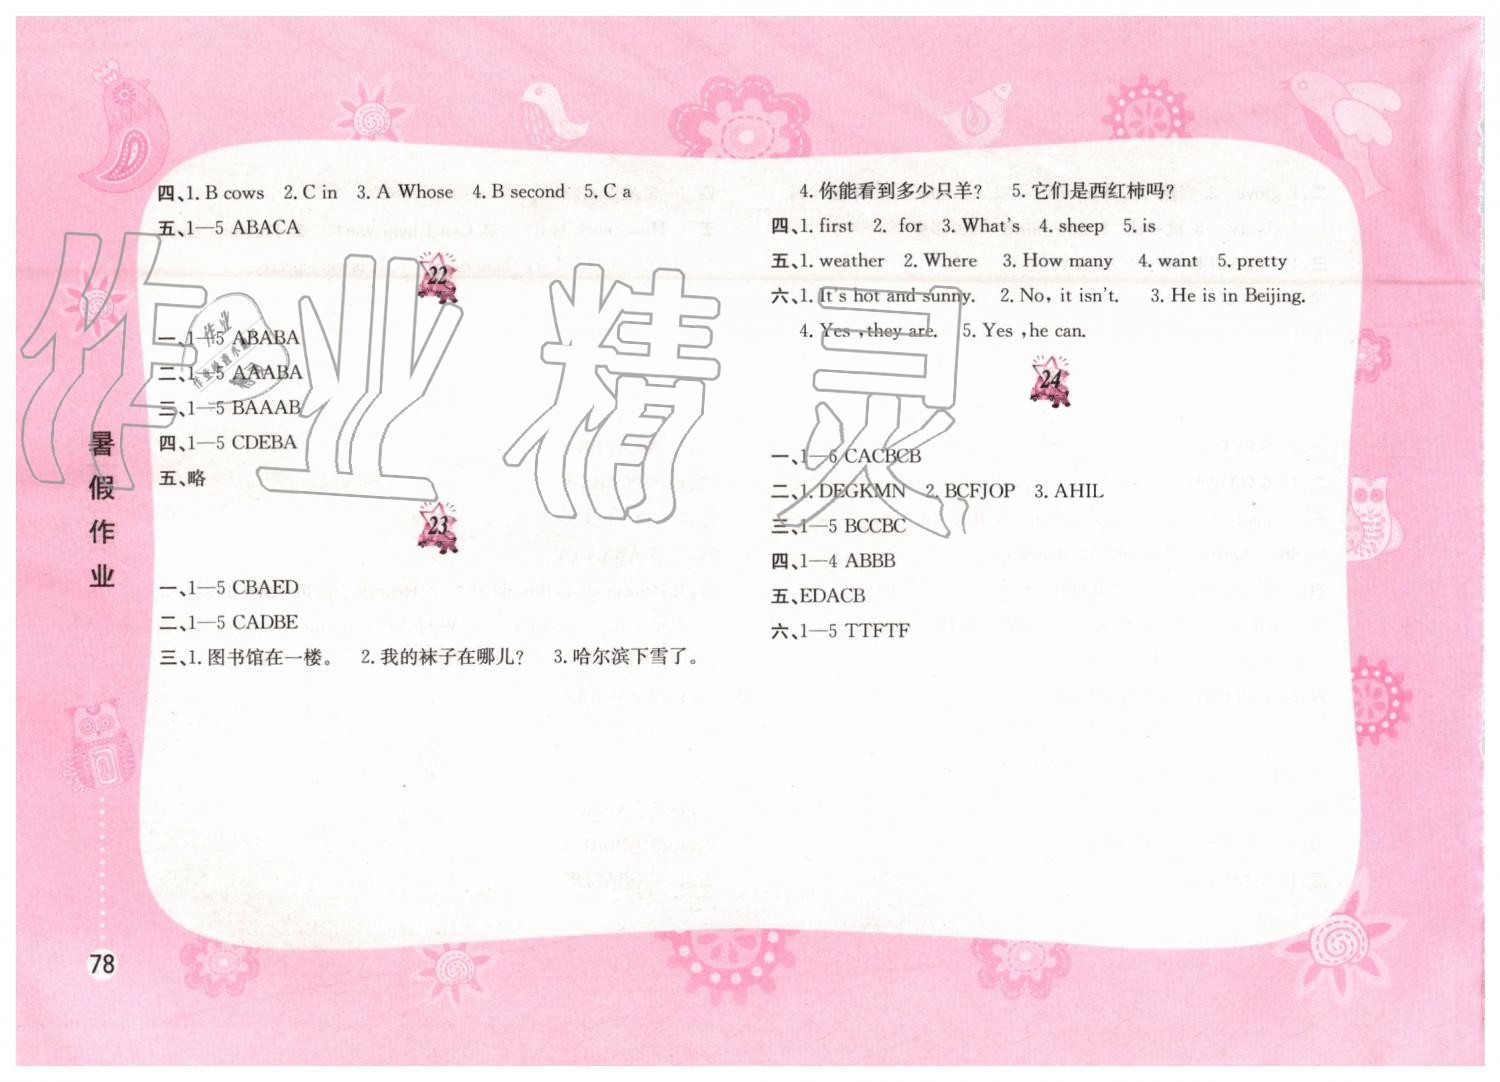 四、1. B cows 2. C in 3. A Whose 4. B second 5. C a
五、1—5 ABACA
22
一、1—5 ABABA
二、1—5 AAABA
三、1—5 BAAAB
四、1—5 CDEBA
五、略
23
一、1—5 CBAED
二、1—5 CADBE
三、1. 图书馆在一楼。 2. 我的袜子在哪儿？ 3. 哈尔滨下雪了。
4. 你能看到多少只羊？ 5. 它们是西红柿吗？
四、1. first 2. for 3. What's 4. sheep 5. is
五、1. weather 2. Where 3. How many 4. want 5. pretty
六、1. It's hot and sunny. 2. No, it isn't. 3. He is in Beijing.
4. Yes ,they are. 5. Yes ,he can.
24
一、1—6 CACBCB
二、1. DEGKMN 2. BCFJOP 3. AHIL
三、1—5 BCCBC
四、1—4 ABBB
五、EDACB
六、1—5 TTFTF
暑假作业
78
作业精灵
作业